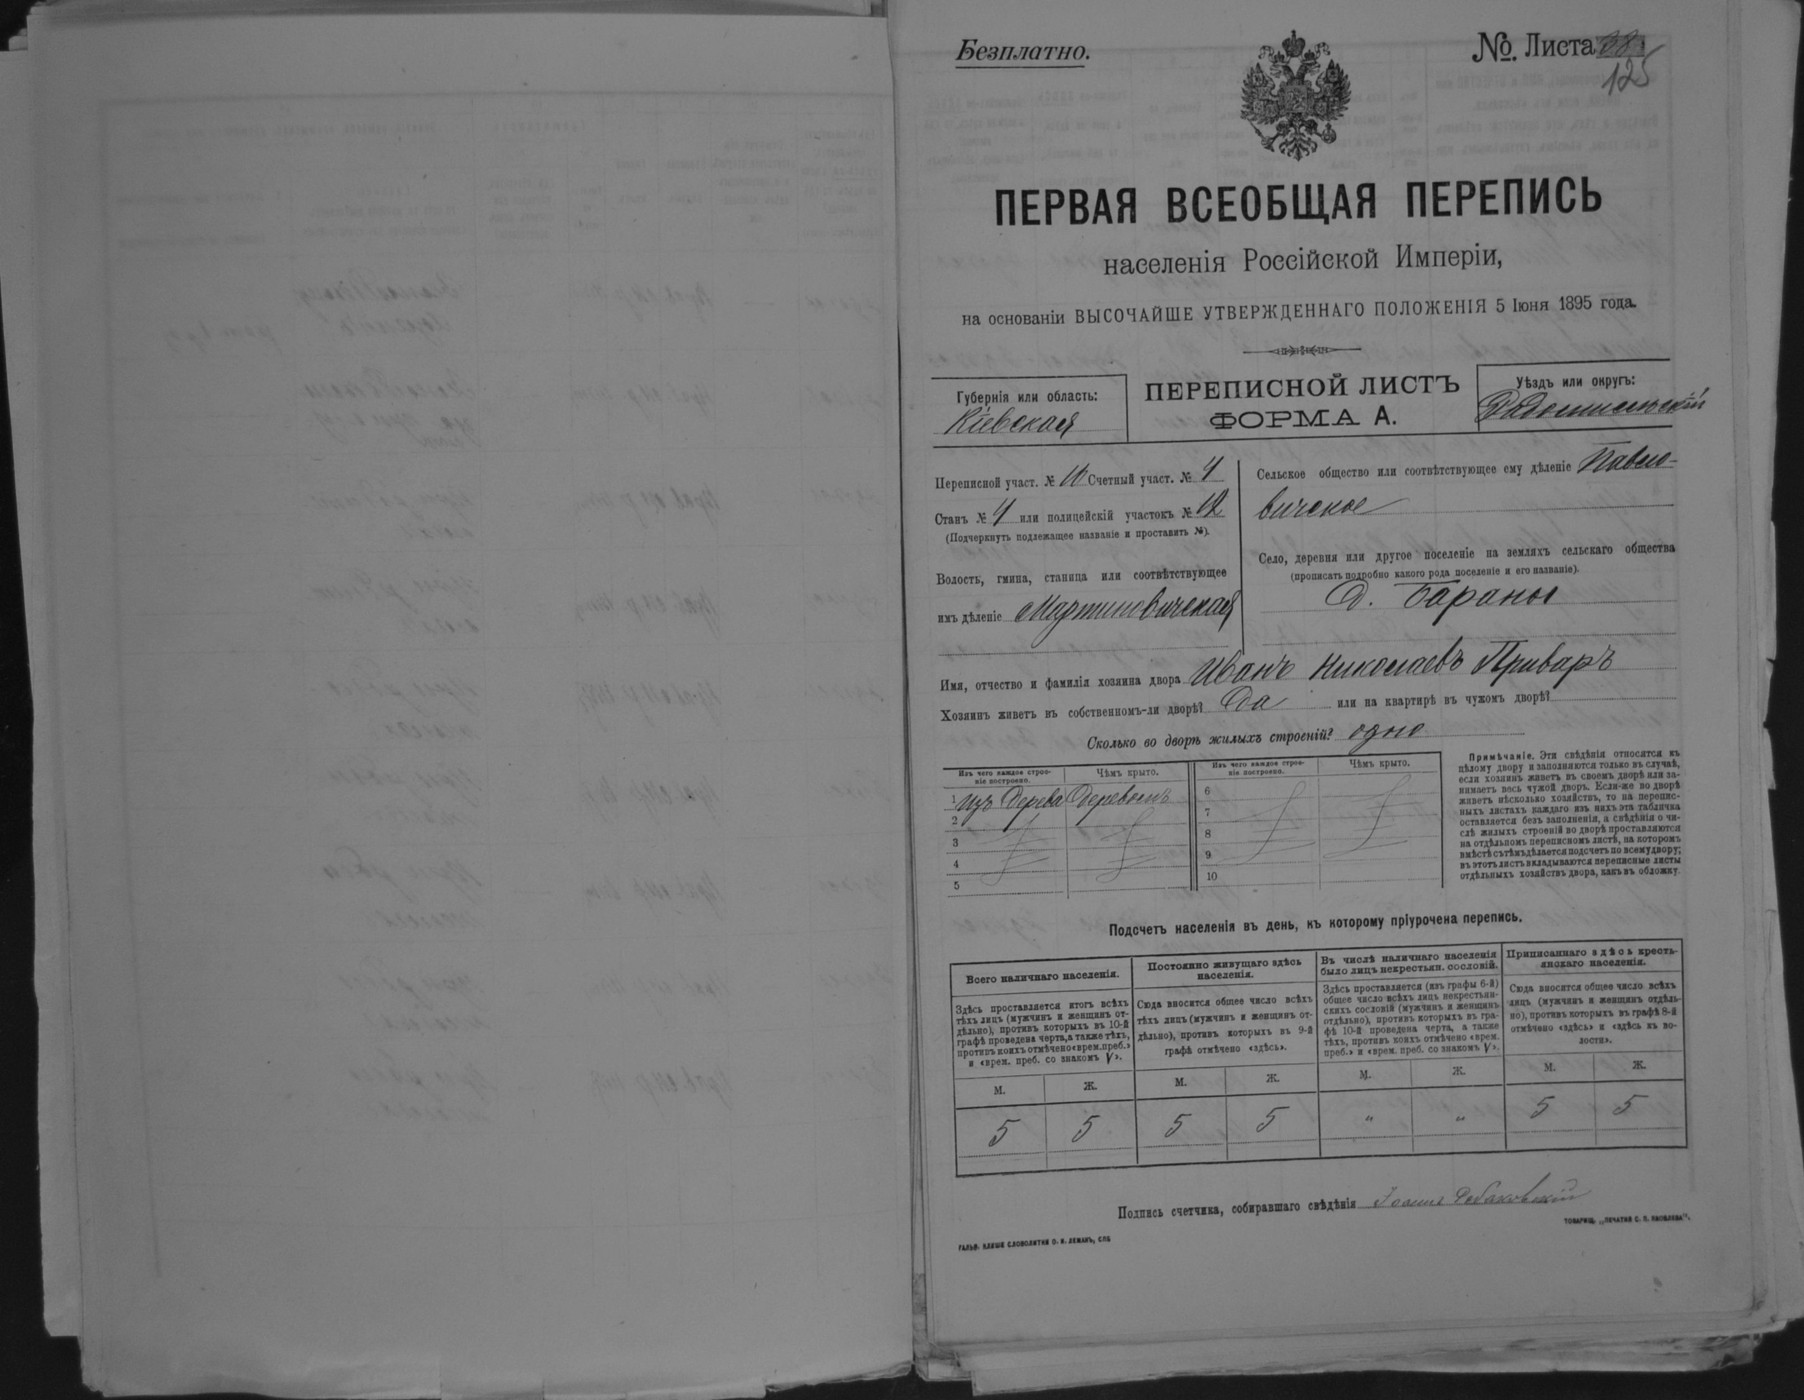 Безплатно.
№. Листа 88
125
ПЕРВАЯ ВСЕОБЩАЯ ПЕРЕПИСЬ
населенія Россійской Имперіи,
на основаніи ВЫСОЧАЙШЕ УТВЕРЖДЕННАГО ПОЛОЖЕНІЯ 5 Іюня 1895 года.
Губернія или область:
Кіевская
ПЕРЕПИСНОЙ ЛИСТЪ
ФОРМА А.
Уѣздъ или округъ:
Радомысльскій
Переписной участ. № 10 Счетный участ. № 4
Станъ № 4 или полицейскій участокъ № 12
(Подчеркнуть подлежащее названіе и проставить №).
Волость, гмина, станица или соотвѣтствующее
имъ дѣленіе Мартиновичская
Сельское общество или соотвѣтствующее ему дѣленіе Павло-
вичское
Село, деревня или другое поселеніе на земляхъ сельскаго общества
(прописать подробно какого рода поселеніе и его названіе).
д. Бараны
Имя, отчество и фамилія хозяина двора Иванъ Николаевъ Приваръ
Хозяинъ живетъ въ собственномъ-ли дворѣ? Да или на квартирѣ въ чужомъ дворѣ?
Сколько во дворѣ жилыхъ строеній? одно
Изъ чего каждое строе-
ніе построено.
Чѣмъ крыто.
1 Изъ Дерева Деревомъ
2
3
4
5
Изъ чего каждое строе-
ніе построено.
Чѣмъ крыто.
6
7
8
9
10
Примѣчаніе. Эти свѣдѣнія относятся къ
цѣлому двору и заполняются только въ случаѣ,
если хозяинъ живетъ въ своемъ дворѣ или за-
нимаетъ весь чужой дворъ. Если-же во дворѣ
живетъ нѣсколько хозяйствъ, то на перепис-
ныхъ листахъ каждаго изъ нихъ эта табличка
оставляется безъ заполненія, а свѣдѣнія о чи-
слѣ жилыхъ строеній во дворѣ проставляются
на отдѣльномъ переписномъ листѣ, на которомъ
вмѣстѣ съ тѣмъ дѣлается подсчетъ по всему двору;
въ этотъ листъ вкладываются переписные листы
отдѣльныхъ хозяйствъ двора, какъ въ обложку.
Подсчетъ населенія въ день, къ которому пріурочена перепись.
Всего наличнаго населенія.
Здѣсь проставляется итогъ всѣхъ
тѣхъ лицъ (мужчинъ и женщинъ от-
дѣльно), противъ которыхъ въ 10-й
графѣ проведена черта, а также тѣхъ,
противъ коихъ отмѣчено «врем. преб.»
и «врем. преб. со знакомъ V».
М. Ж.
5 5
Постоянно живущаго здѣсь
населенія.
Сюда вносится общее число всѣхъ
тѣхъ лицъ (мужчинъ и женщинъ от-
дѣльно), противъ которыхъ въ 9-й
графѣ отмѣчено «здѣсь».
М. Ж.
5 5
Въ числѣ наличнаго населенія
было лицъ некрестьян. сословій.
Здѣсь проставляется (изъ графы 6-й)
общее число всѣхъ лицъ некрестьян-
скихъ сословій (мужчинъ и женщинъ
отдѣльно), противъ которыхъ въ гра-
фѣ 10-й проведена черта, а также
тѣхъ, противъ коихъ отмѣчено «врем.
преб.» и «врем. преб. со знакомъ V».
М. Ж.
" "
Приписаннаго здѣсь кресть-
янскаго населенія.
Сюда вносится общее число всѣхъ
лицъ (мужчинъ и женщинъ отдѣль-
но), противъ которыхъ въ графѣ 8-й
отмѣчено «здѣсь» и «здѣсь къ во-
лости».
М. Ж.
5 5
Подпись счетчика, собиравшаго свѣдѣнія
ГАЛЬВ. КЛИШЕ СЛОВОЛИТНИ О. И. ЛЕМАНЪ, СПБ
ТОВАРИЩ. „ПЕЧАТНЯ С. П. ЯКОВЛЕВА“.